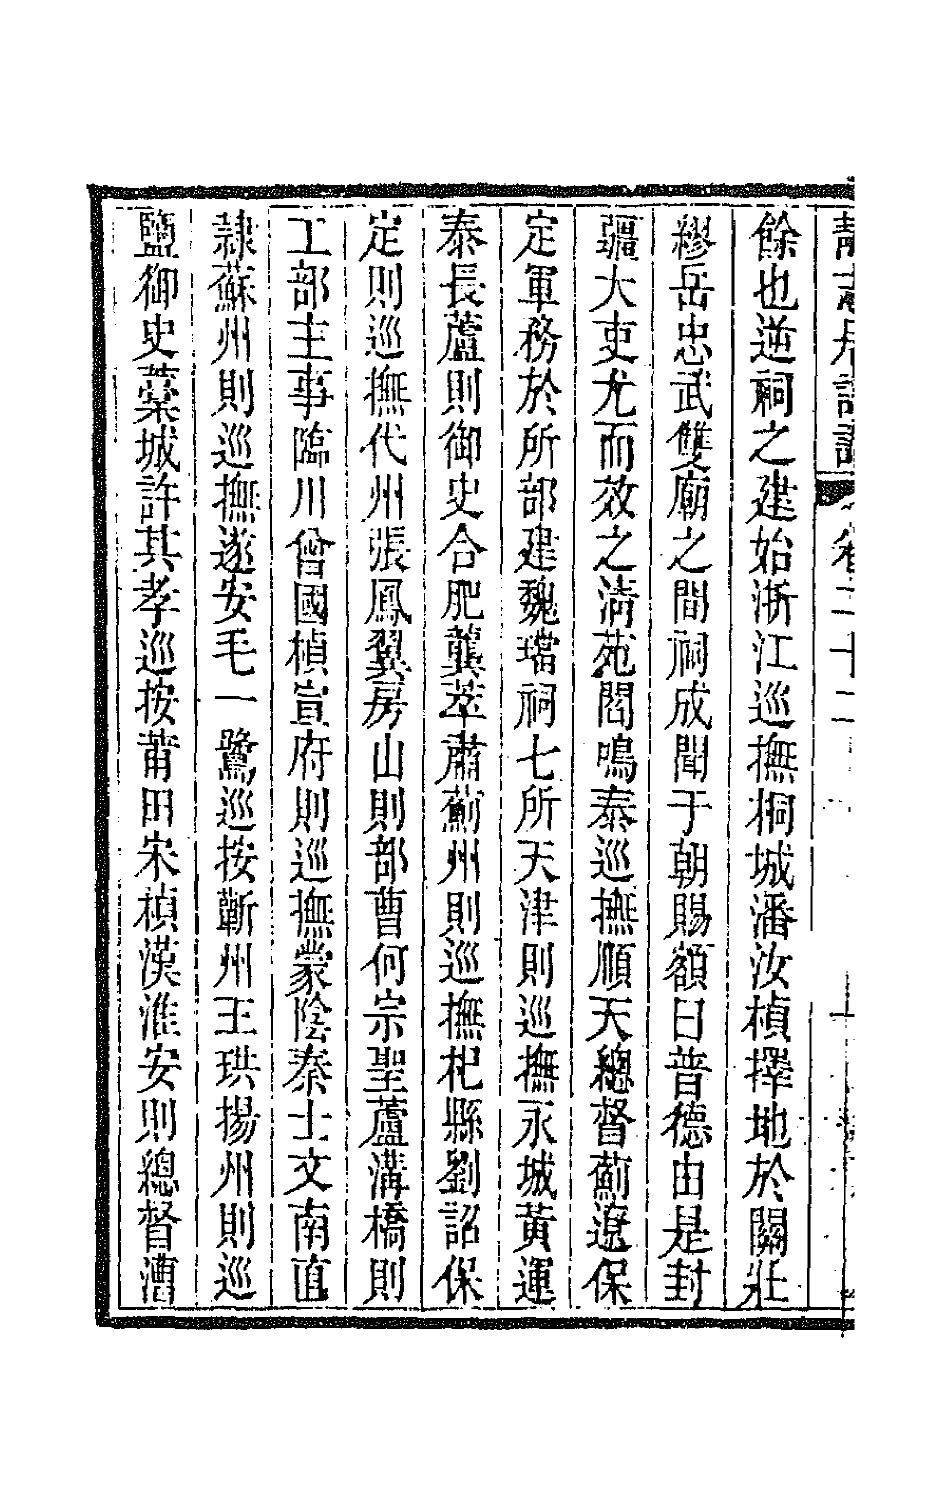 餘也逆祠之建始浙江巡撫桐城潘汝楨擇地於關壯
繆岳忠武雙廟之間祠成聞于朝賜額曰普德由是封
疆大吏尤而效之淸苑閻鳴泰巡撫順天總督薊遼保
定軍務於所部建魏璫祠七所天津則巡撫永城黃運
泰長蘆則御史合肥龔萃肅薊州則巡撫杞縣劉詔保
定則巡撫代州張鳳翼房山則部曹何宗聖蘆溝橋則
工部主事臨川曾國楨宣府則巡撫蒙陰秦士文南直
隷蘇州則巡撫遂安毛一鷺巡按蘄州王珙揚州則巡
鹽御史藁城許其孝巡按莆田宋楨漢淮安則總督漕